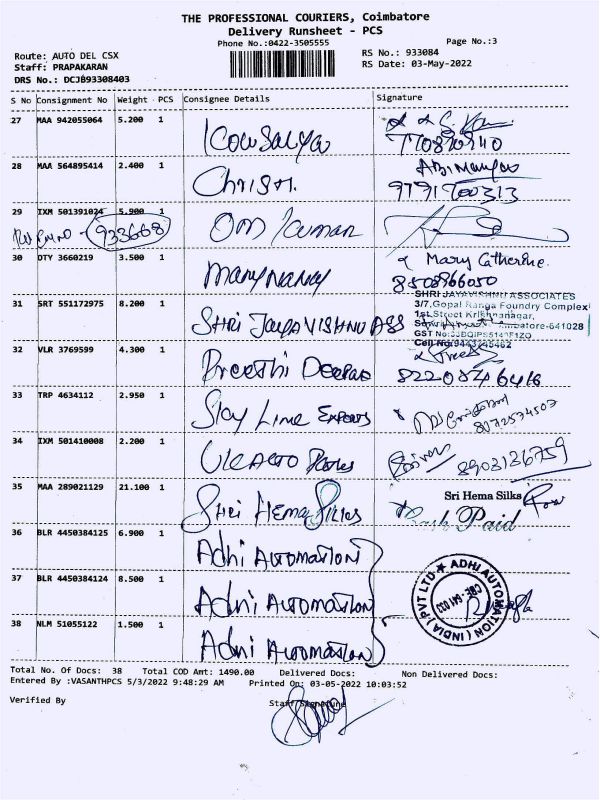 THE PROFESSIONAL COURIERS, Coimbatore
Delivery Runsheet - PCS
Phone No.:0422-3505555
Page No.:3
Route: AUTO DEL CSX
RS No.: 933084
Staff: PRAPAKARAN
RS Date: 03-May-2022
DRS No.: DCJB93308403
S No Consignment No Weight PCS Consignee Details Signature
27 MAA 942055064 5.200 1 Kousalya
28 MAA 564895414 2.400 1 Christi. Abimanyu
9791700313
29 IXM 501391024 5.900 1 Om Kumar
933668
30 DTY 3660219 3.500 1 Mary Nancy Mary Catherine.
8508966050
31 SRT 551172975 8.200 1 SHRI JAYAVISHNU ASS
SHRI JAYAVISHNU ASSOCIATES
3/7,Gopal Ranga Foundry Complex
1st Street Krishnanagar,
GST No:
Cell No:
32 VLR 3769599 4.300 1 Preethi Deepad
8220846416
33 TRP 4634112 2.950 1 Sky Line Exports
8072574503
34 IXM 501410008 2.200 1
8903126759
35 MAA 289021129 21.100 1 Shri Hema Silks
Sri Hema Silks
Cash Paid
36 BLR 4450384125 6.900 1 Adhi Automation
37 BLR 4450384124 8.500 1 Adhi Automation
38 NLM 51055122 1.500 1 Adhi Automation
ADHI AUTOMATION (INDIA) PVT LTD
CBE - 641 033
Total No. Of Docs: 38 Total COD Amt: 1490.00 Delivered Docs: Non Delivered Docs:
Entered By :VASANTHPCS 5/3/2022 9:48:29 AM Printed On: 03-05-2022 10:03:52
Verified By Staff Signature